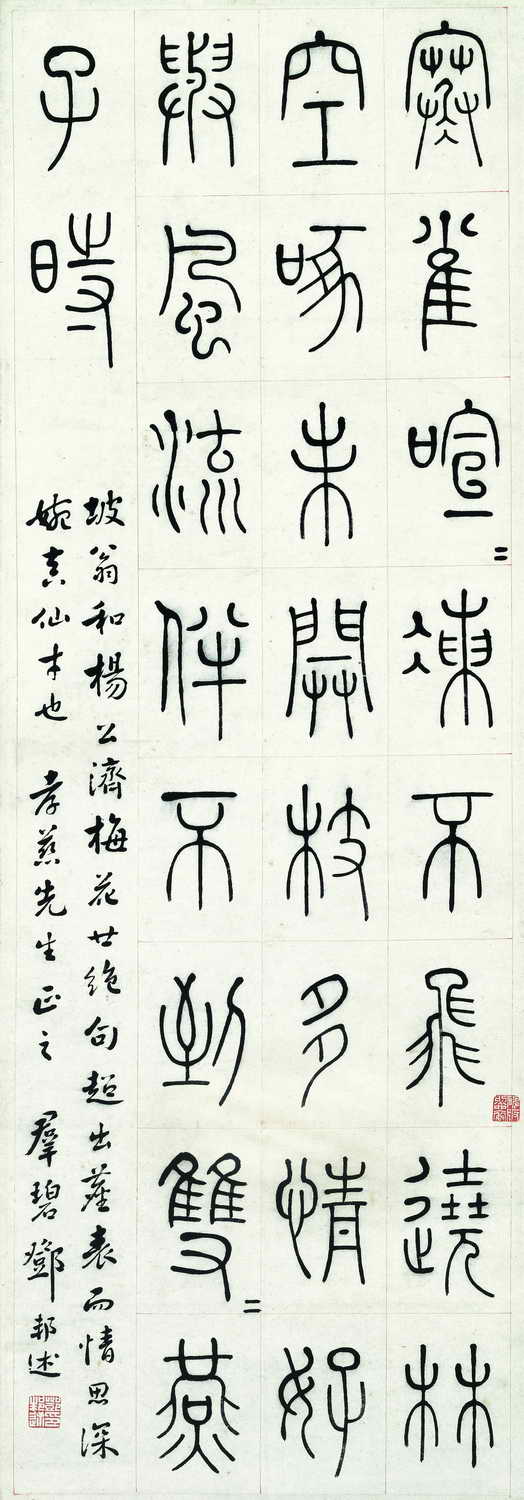 寒雀喧〻凍不飛遶林
空啄未開枝多情好
與風流伴不到雙〻燕
子時
坡翁和楊公濟梅花廿絶句超出塵表而情思深
婉真仙才也 孝慈先生正之 羣碧鄧邦述